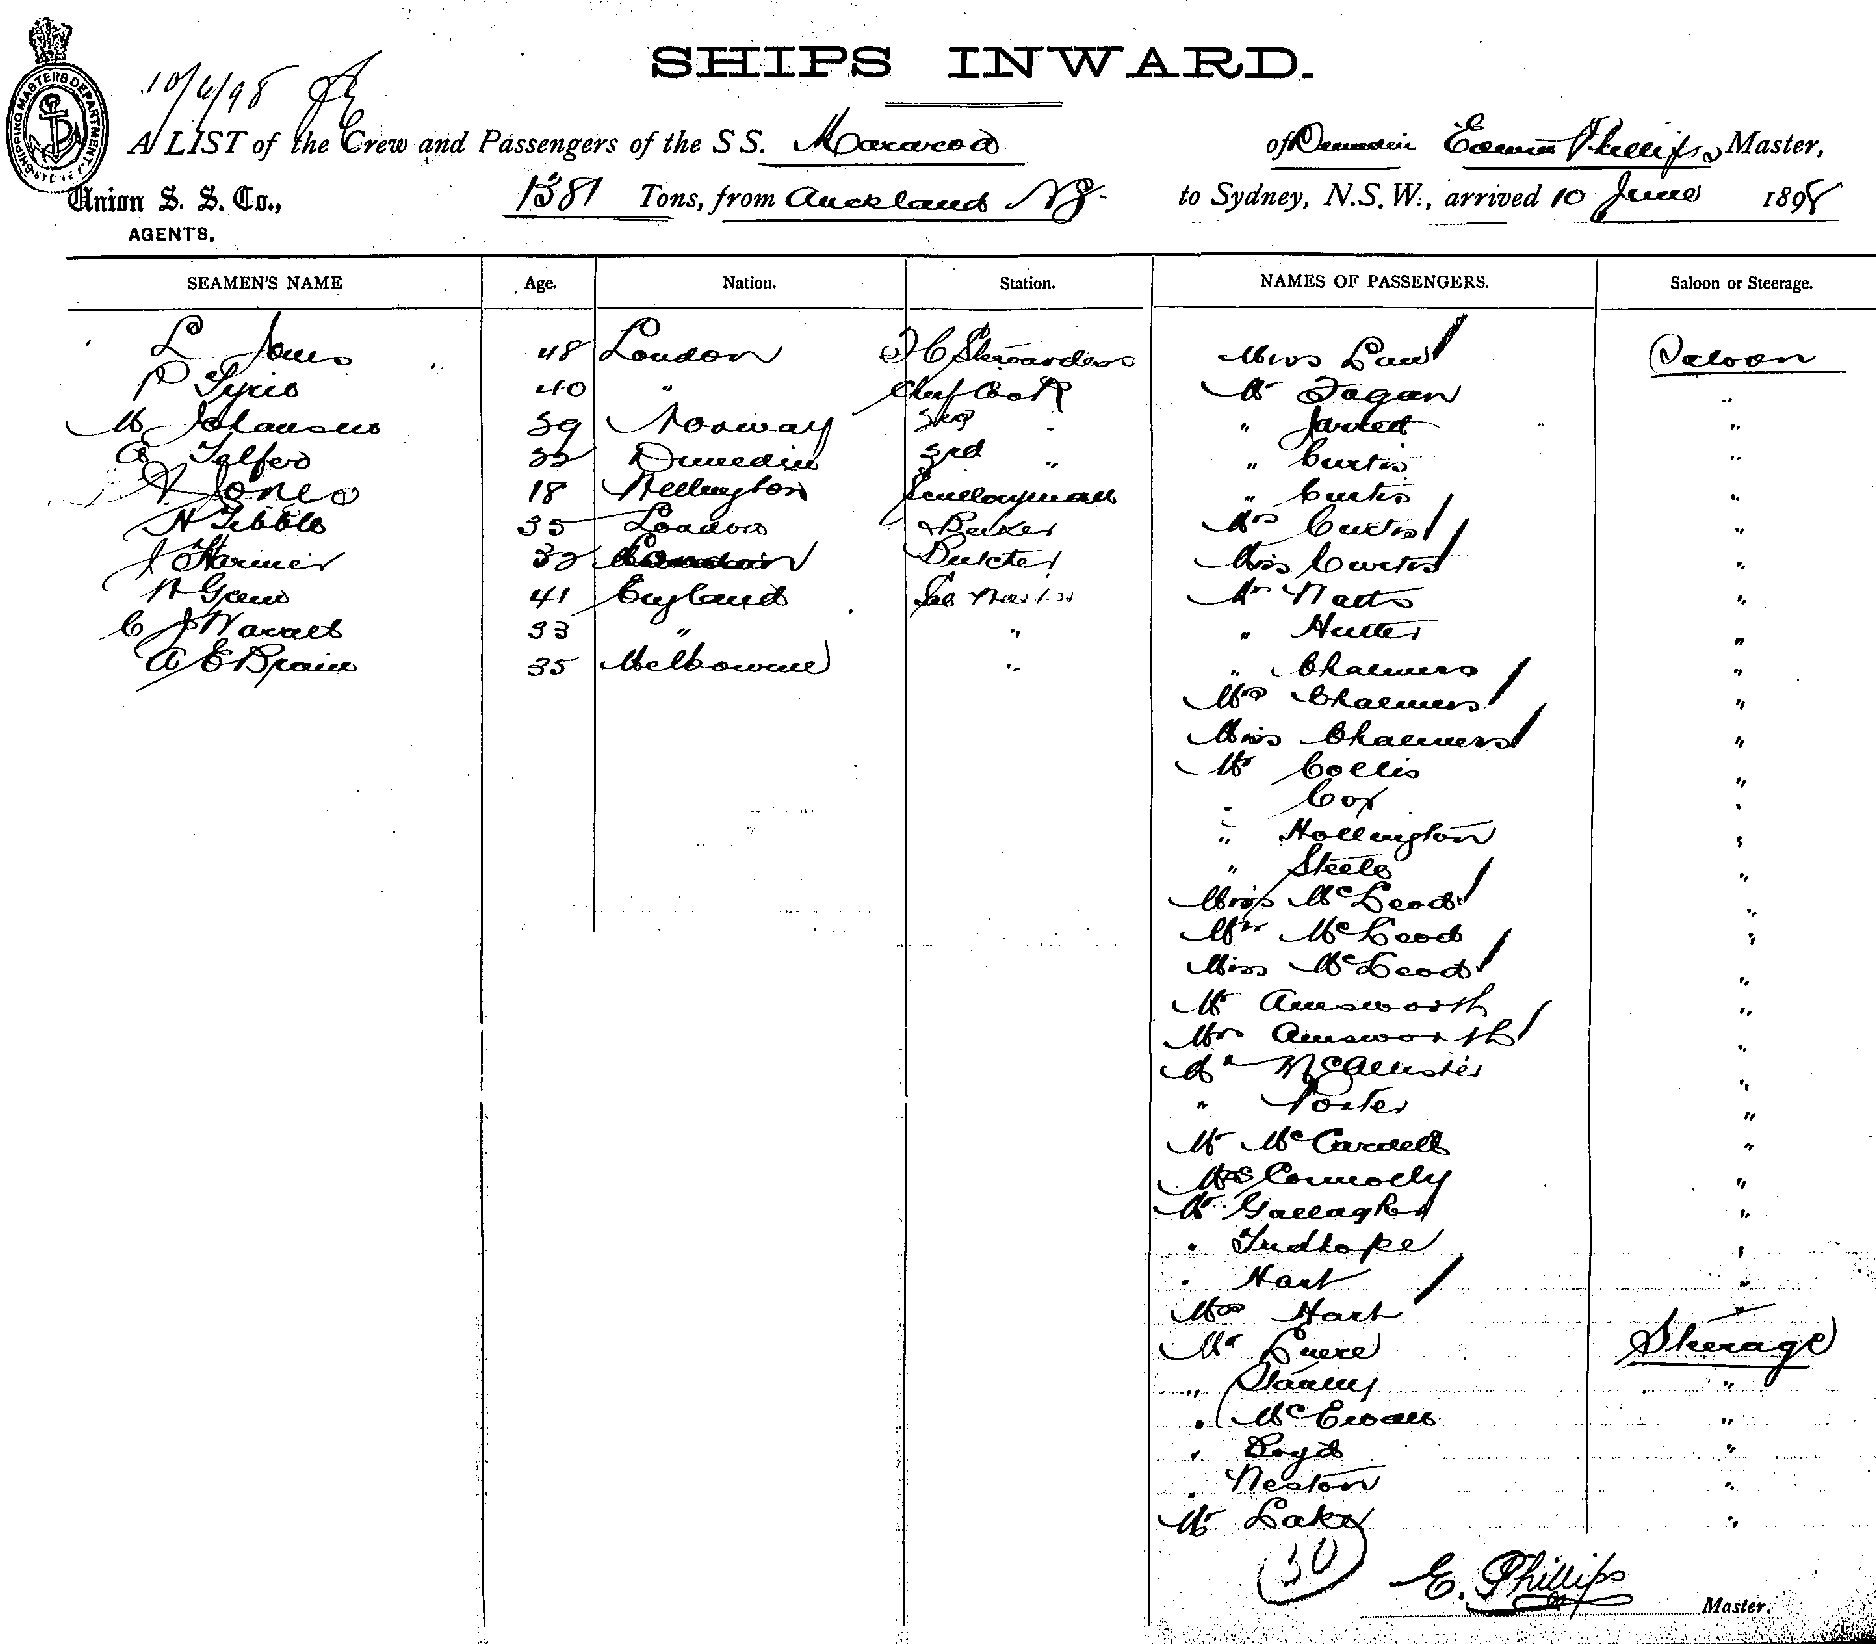 SHIPS INWARD.
SHIPPING MASTERS DEPARTMENT
10/6/98
A LIST of the Crew and Passengers of the S S. Mararoa of Dunedin Edwin Phillips Master,
Union S. S. Co., 1381 Tons, from Auckland NZ. to Sydney, N.S.W., arrived 10 June 1898
AGENTS,
SEAMEN'S NAME Age. Nation. Station. NAMES OF PASSENGERS. Saloon or Steerage.
L Jones 48 London Miss Law Saloon
P 40 " Chief Cook Mr Fagan "
M Johansen 39 Norway 2nd " Jarred "
A Telfer 32 Dunedin 3rd " " Curtis "
A Jones 18 Wellington " Curtis "
H Tibble 35 London Baker Mrs Curtis "
J 32 Butcher Miss Curtis "
41 England Mr Watts "
C J 33 " " " "
A E Brain 35 Melbourne " " Chalmers "
Mrs Chalmers "
Miss Chalmers "
Mr Collis "
" Cox "
" Hollington "
" Steele "
Miss McLeod "
Mr McLeod "
Miss McLeod "
Mr Ainsworth "
Mrs Ainsworth "
Mr McAllister "
" Porter "
Mr McCardell "
Connolly "
Mr Gallagher "
" Tudhope "
" Hart "
Mrs Hart "
Mr Steerage
" Stanley "
" McEwan "
" Boyd "
" Weston "
Mr Lake "
30
E. Phillips
Master.